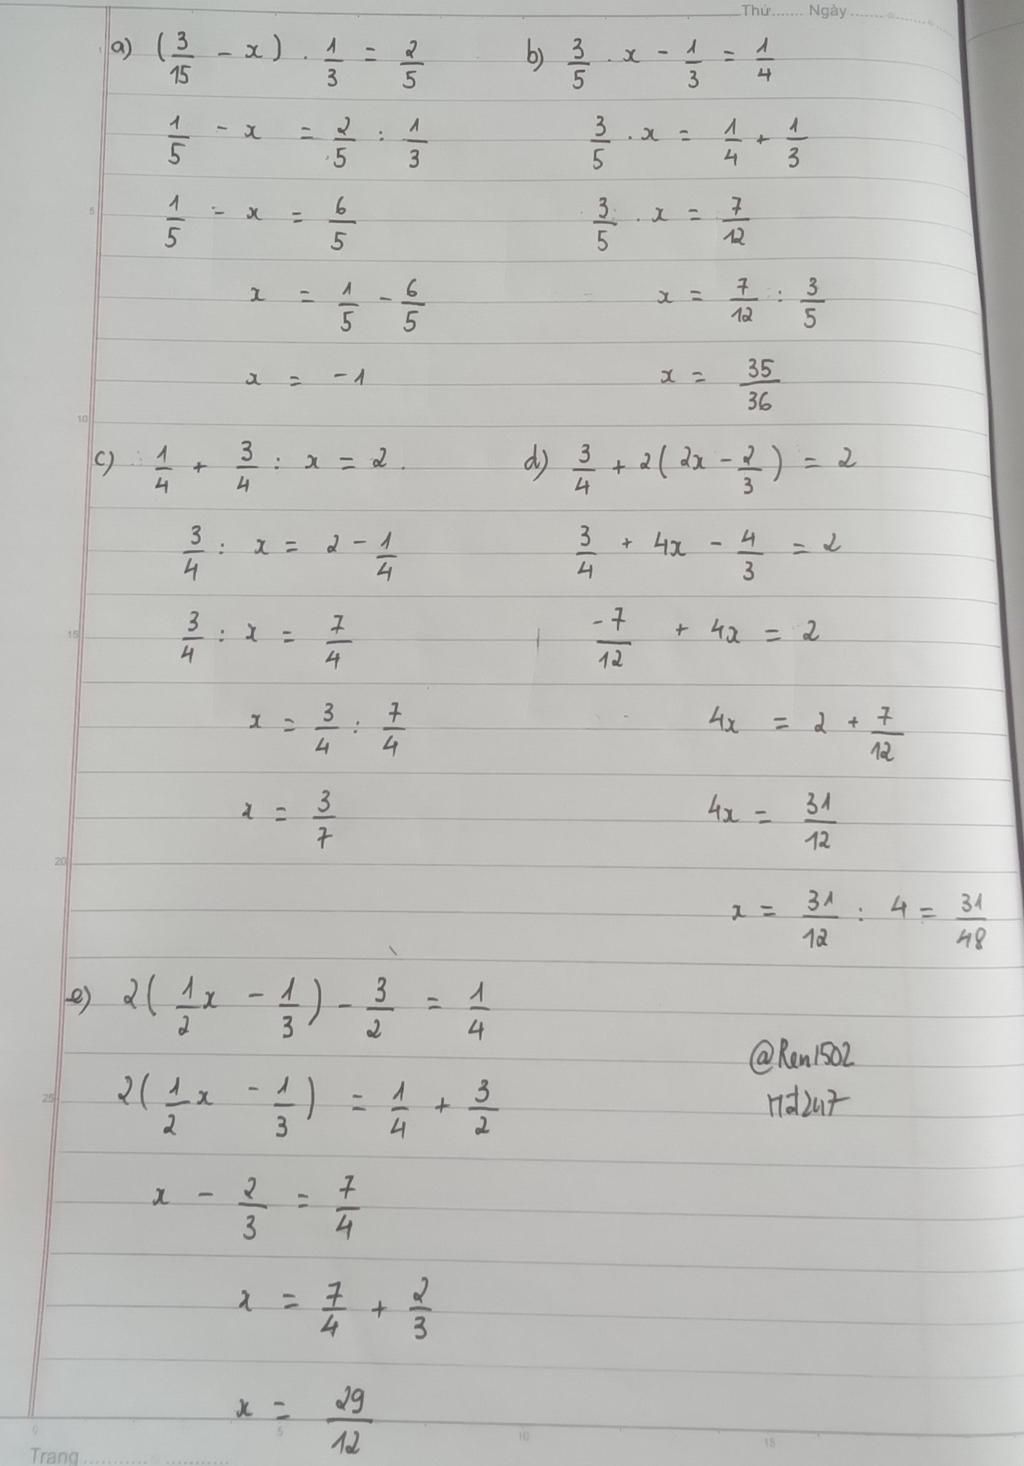 Thứ....... Ngày...............
a) (3/15 - x) . 1/3 = 2/5
1/5 - x = 2/5 : 1/3
1/5 - x = 6/5
x = 1/5 - 6/5
x = -1
b) 3/5 . x - 1/3 = 1/4
3/5 . x = 1/4 + 1/3
3/5 . x = 7/12
x = 7/12 : 3/5
x = 35/36
c) 1/4 + 3/4 : x = 2
3/4 : x = 2 - 1/4
3/4 : x = 7/4
x = 3/4 : 7/4
x = 3/7
d) 3/4 + 2(2x - 2/3) = 2
3/4 + 4x - 4/3 = 2
-7/12 + 4x = 2
4x = 2 + 7/12
4x = 31/12
x = 31/12 : 4 = 31/48
e) 2(1/2x - 1/3) - 3/2 = 1/4
2(1/2x - 1/3) = 1/4 + 3/2
x - 2/3 = 7/4
x = 7/4 + 2/3
x = 29/12
@Ren1502
5
10
15
20
25
0 5 10 15
Trang